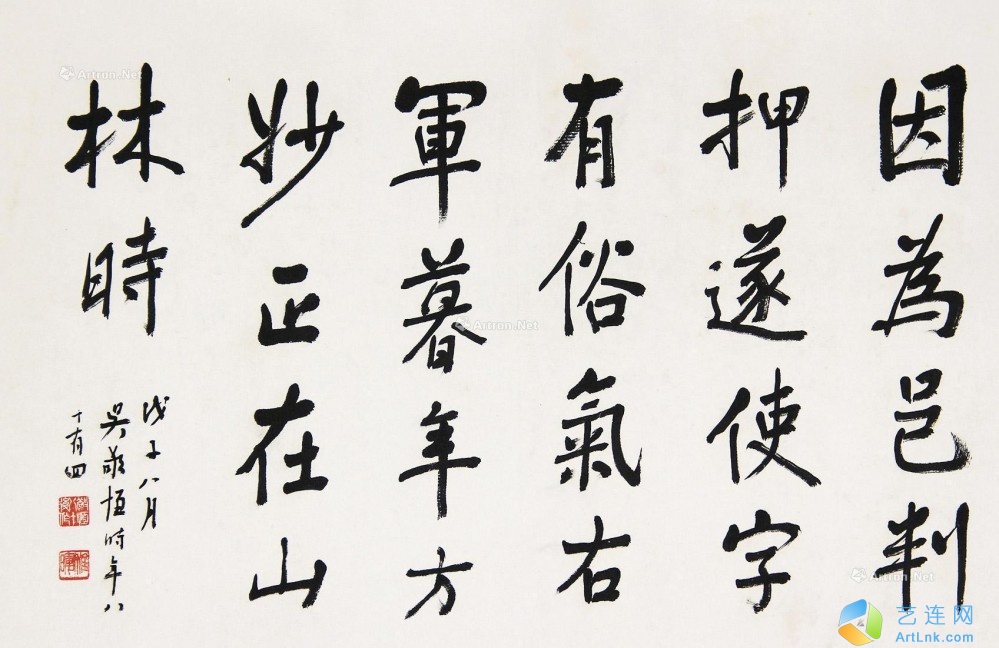 因為邑判
押遂使字
有俗氣右
軍暮年方
妙正在山
林時
戊子八月
吳敬恆時年八
十有四
Artron.Net
Artron.Net
Artron.Net
艺连网
ArtLnk.com